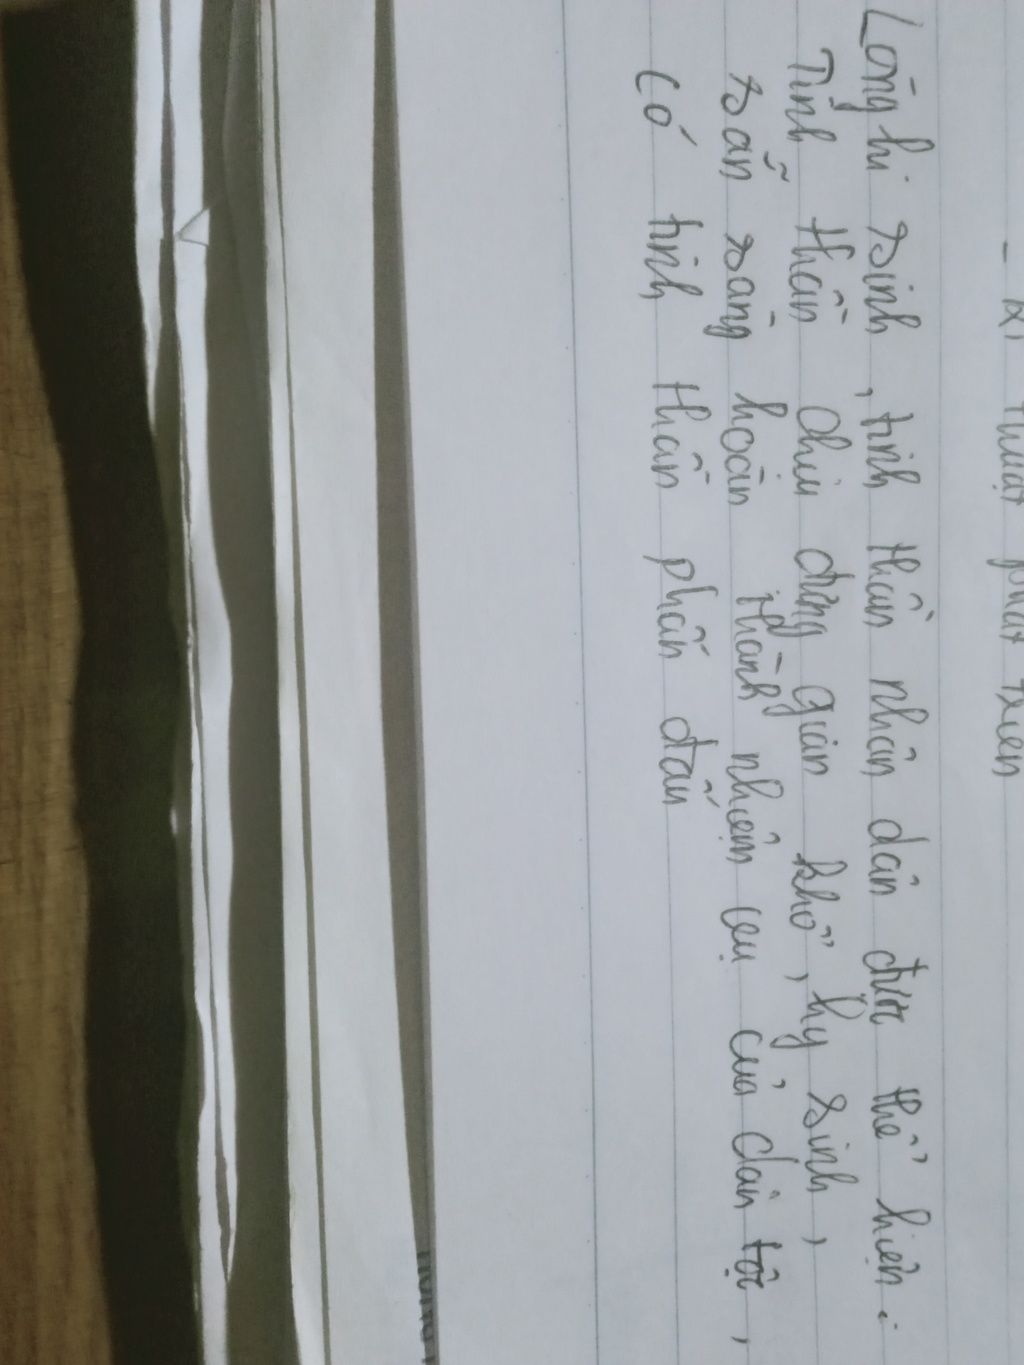 thuật phát triển
Lòng hi sinh, tinh thần nhân dân được thể hiện:
Tinh thần chịu đựng gian khổ, hy sinh,
sẵn sàng hoàn thành nhiệm cụ của dân tộc,
có tinh thần phấn đấu